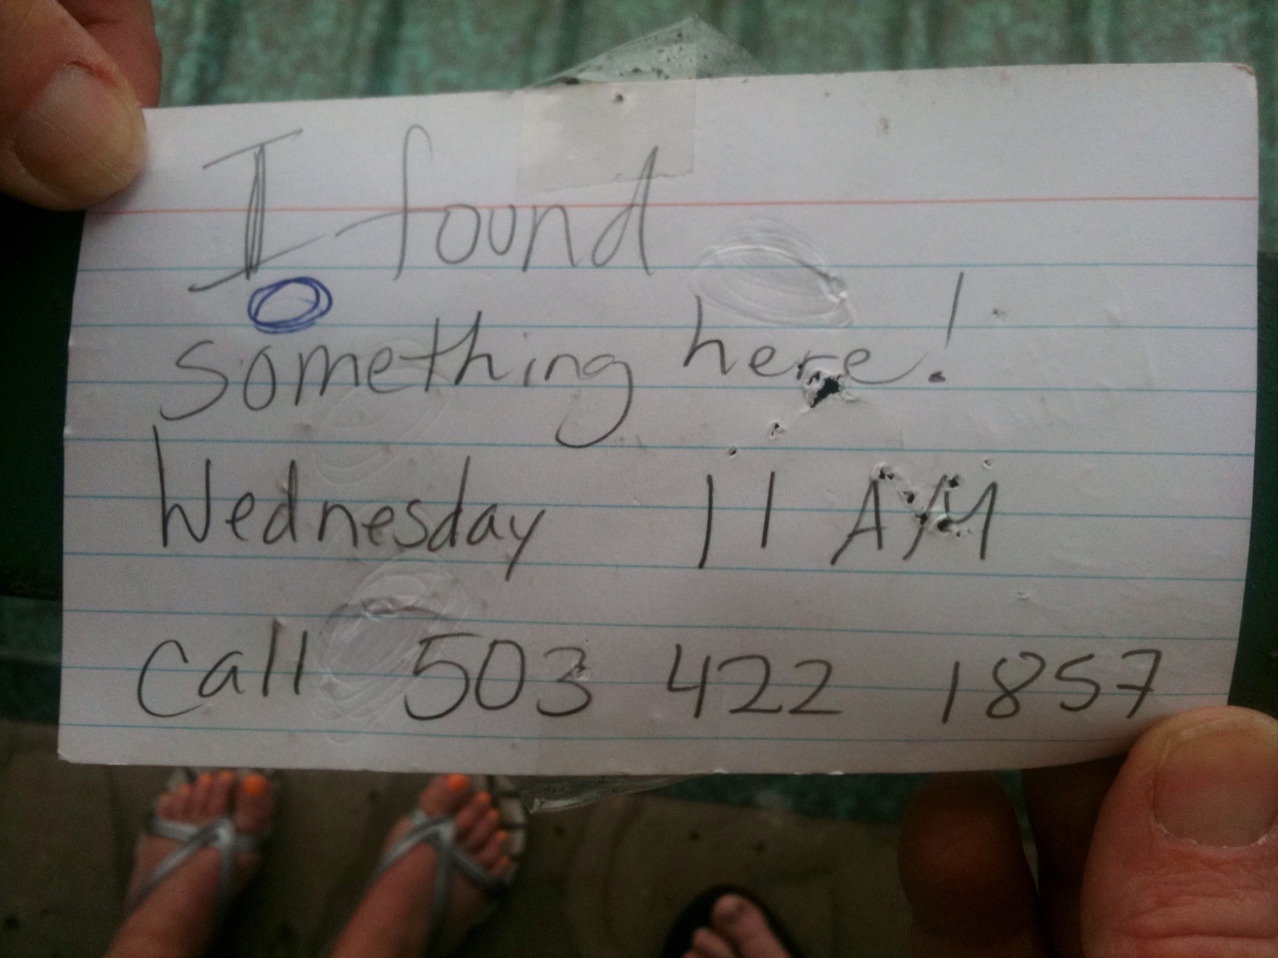 I found
something here!
Wednesday 11 AM
Call 503 422 1857